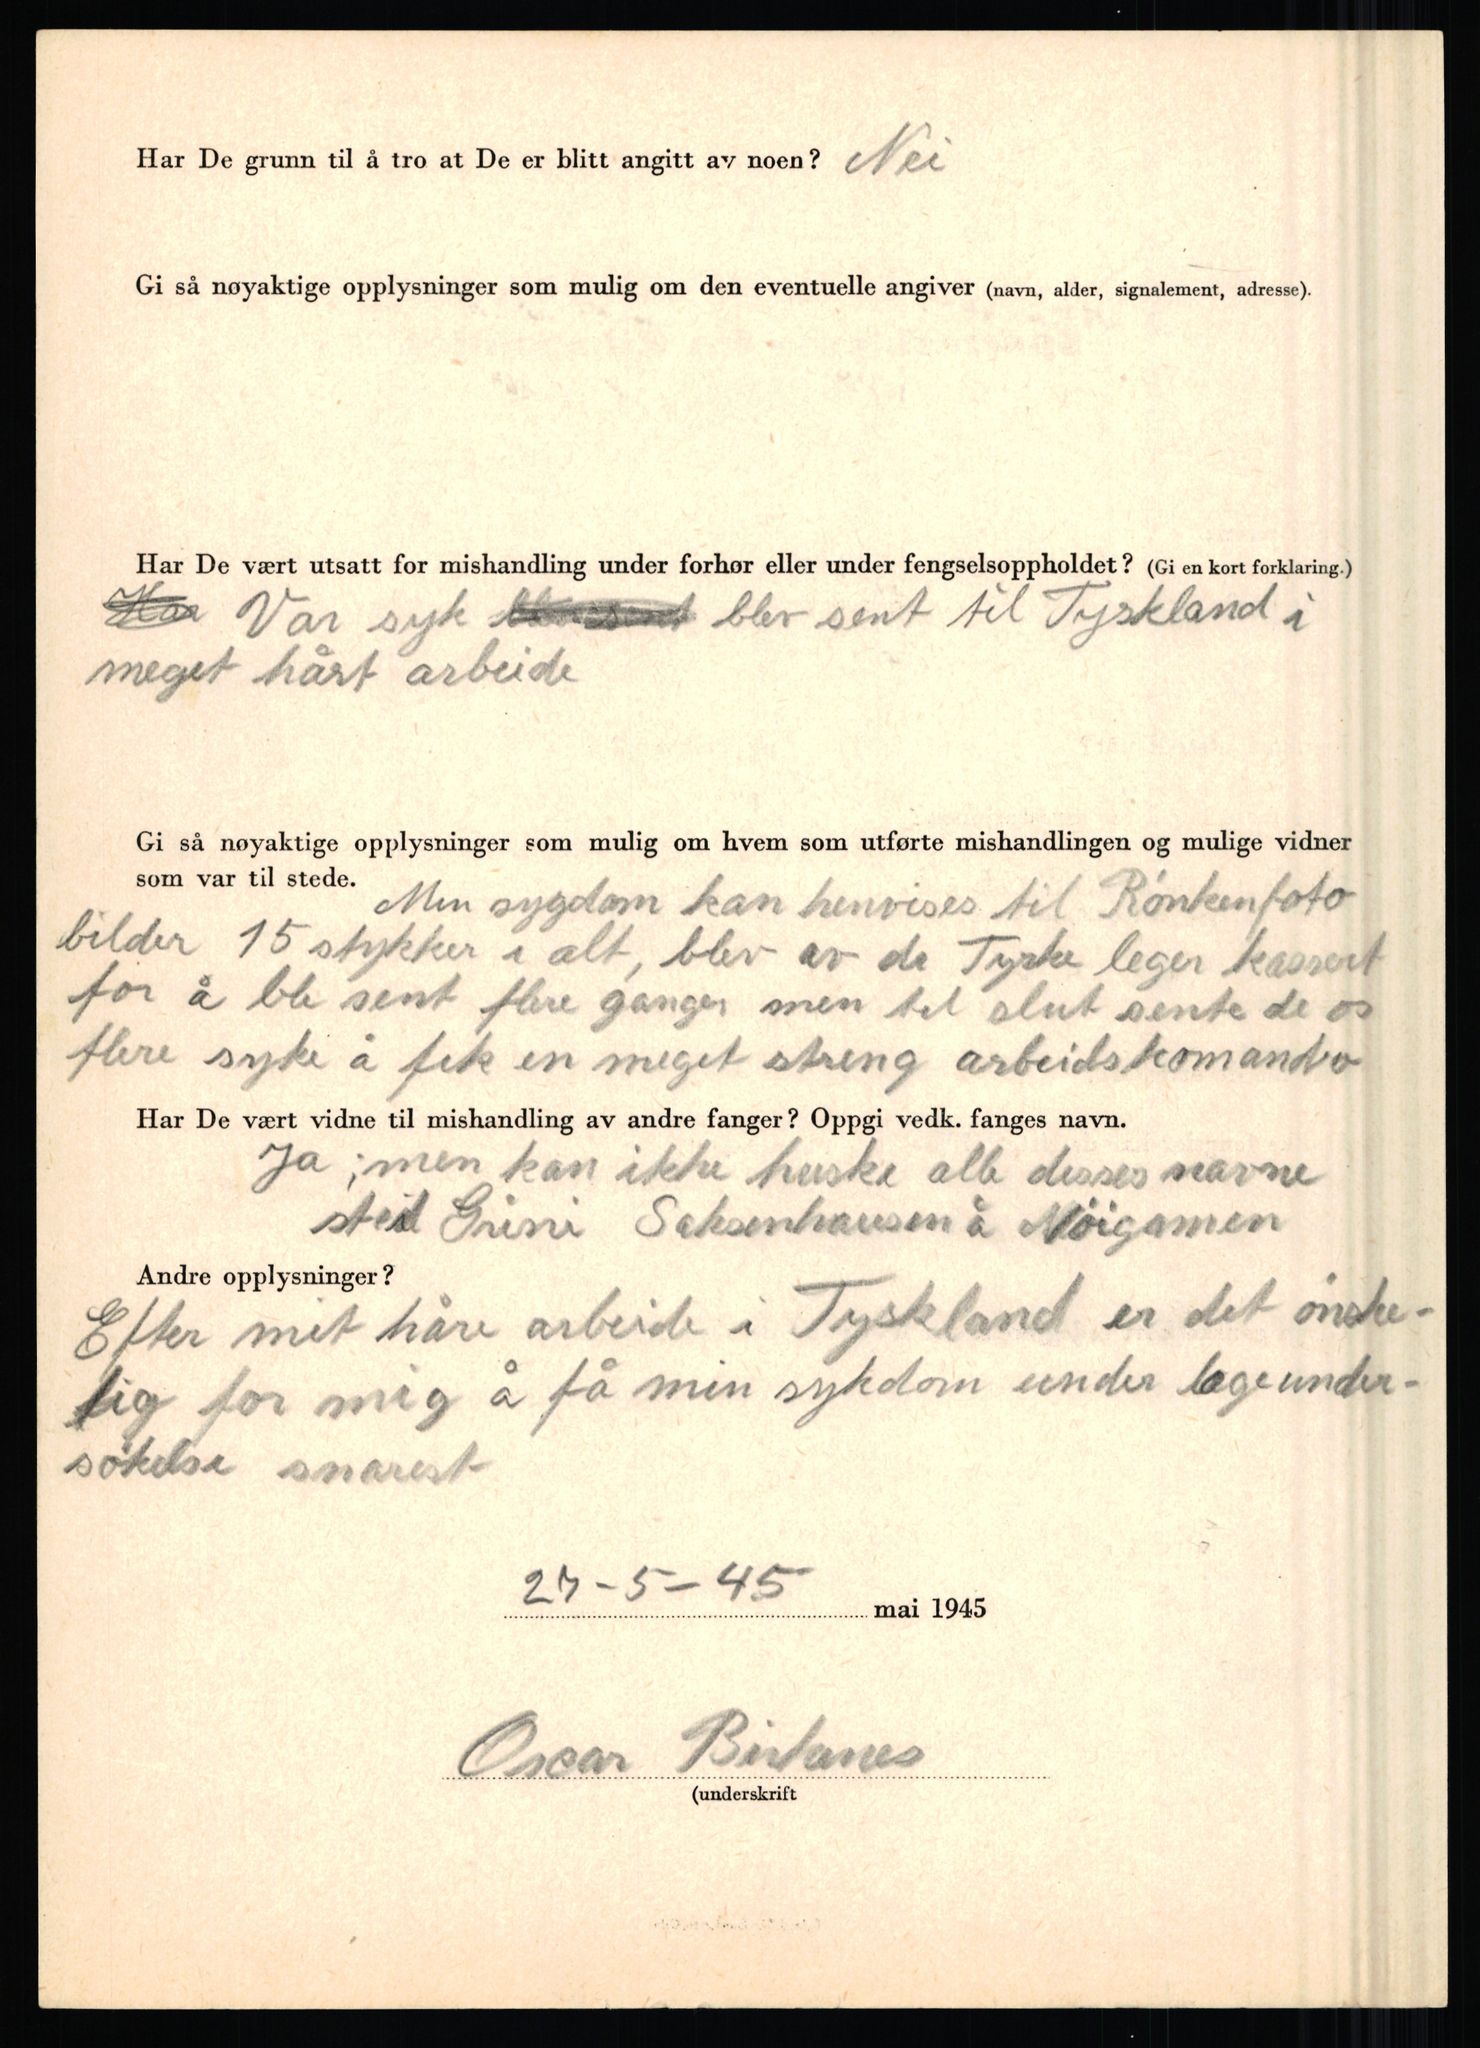 Har De grunn til å tro at De er blitt angitt av noen? Nei
Gi så nøyaktige opplysninger som mulig om den eventuelle angiver (navn, alder, signalement, adresse).
Har De vært utsatt for mishandling under forhør eller under fengselsoppholdet? (Gi en kort forklaring.)
Var syk blev sent til Tyskland i
meget hårt arbeide
Gi så nøyaktige opplysninger som mulig om hvem som utførte mishandlingen og mulige vidner
som var til stede. Min sygdom kan henvises til Rönkenfoto
bilder 15 stykker i alt, blev av de Tyske leger kassert
for å ble sent flere ganger men til slut sente de os
flere syke å fik en meget streng arbeidskomando
Har De vært vidne til mishandling av andre fanger? Oppgi vedk. fanges navn.
Ja; men kan ikke huske alle disses navne
sted Grini Saksenhausen å Nöigamen
Andre opplysninger?
Efter mit håre arbeide i Tyskland er det önske-
lig for mig å få min sykdom under lægeunder-
sökelse snarest
27-5-45 mai 1945
Oscar
(underskrift